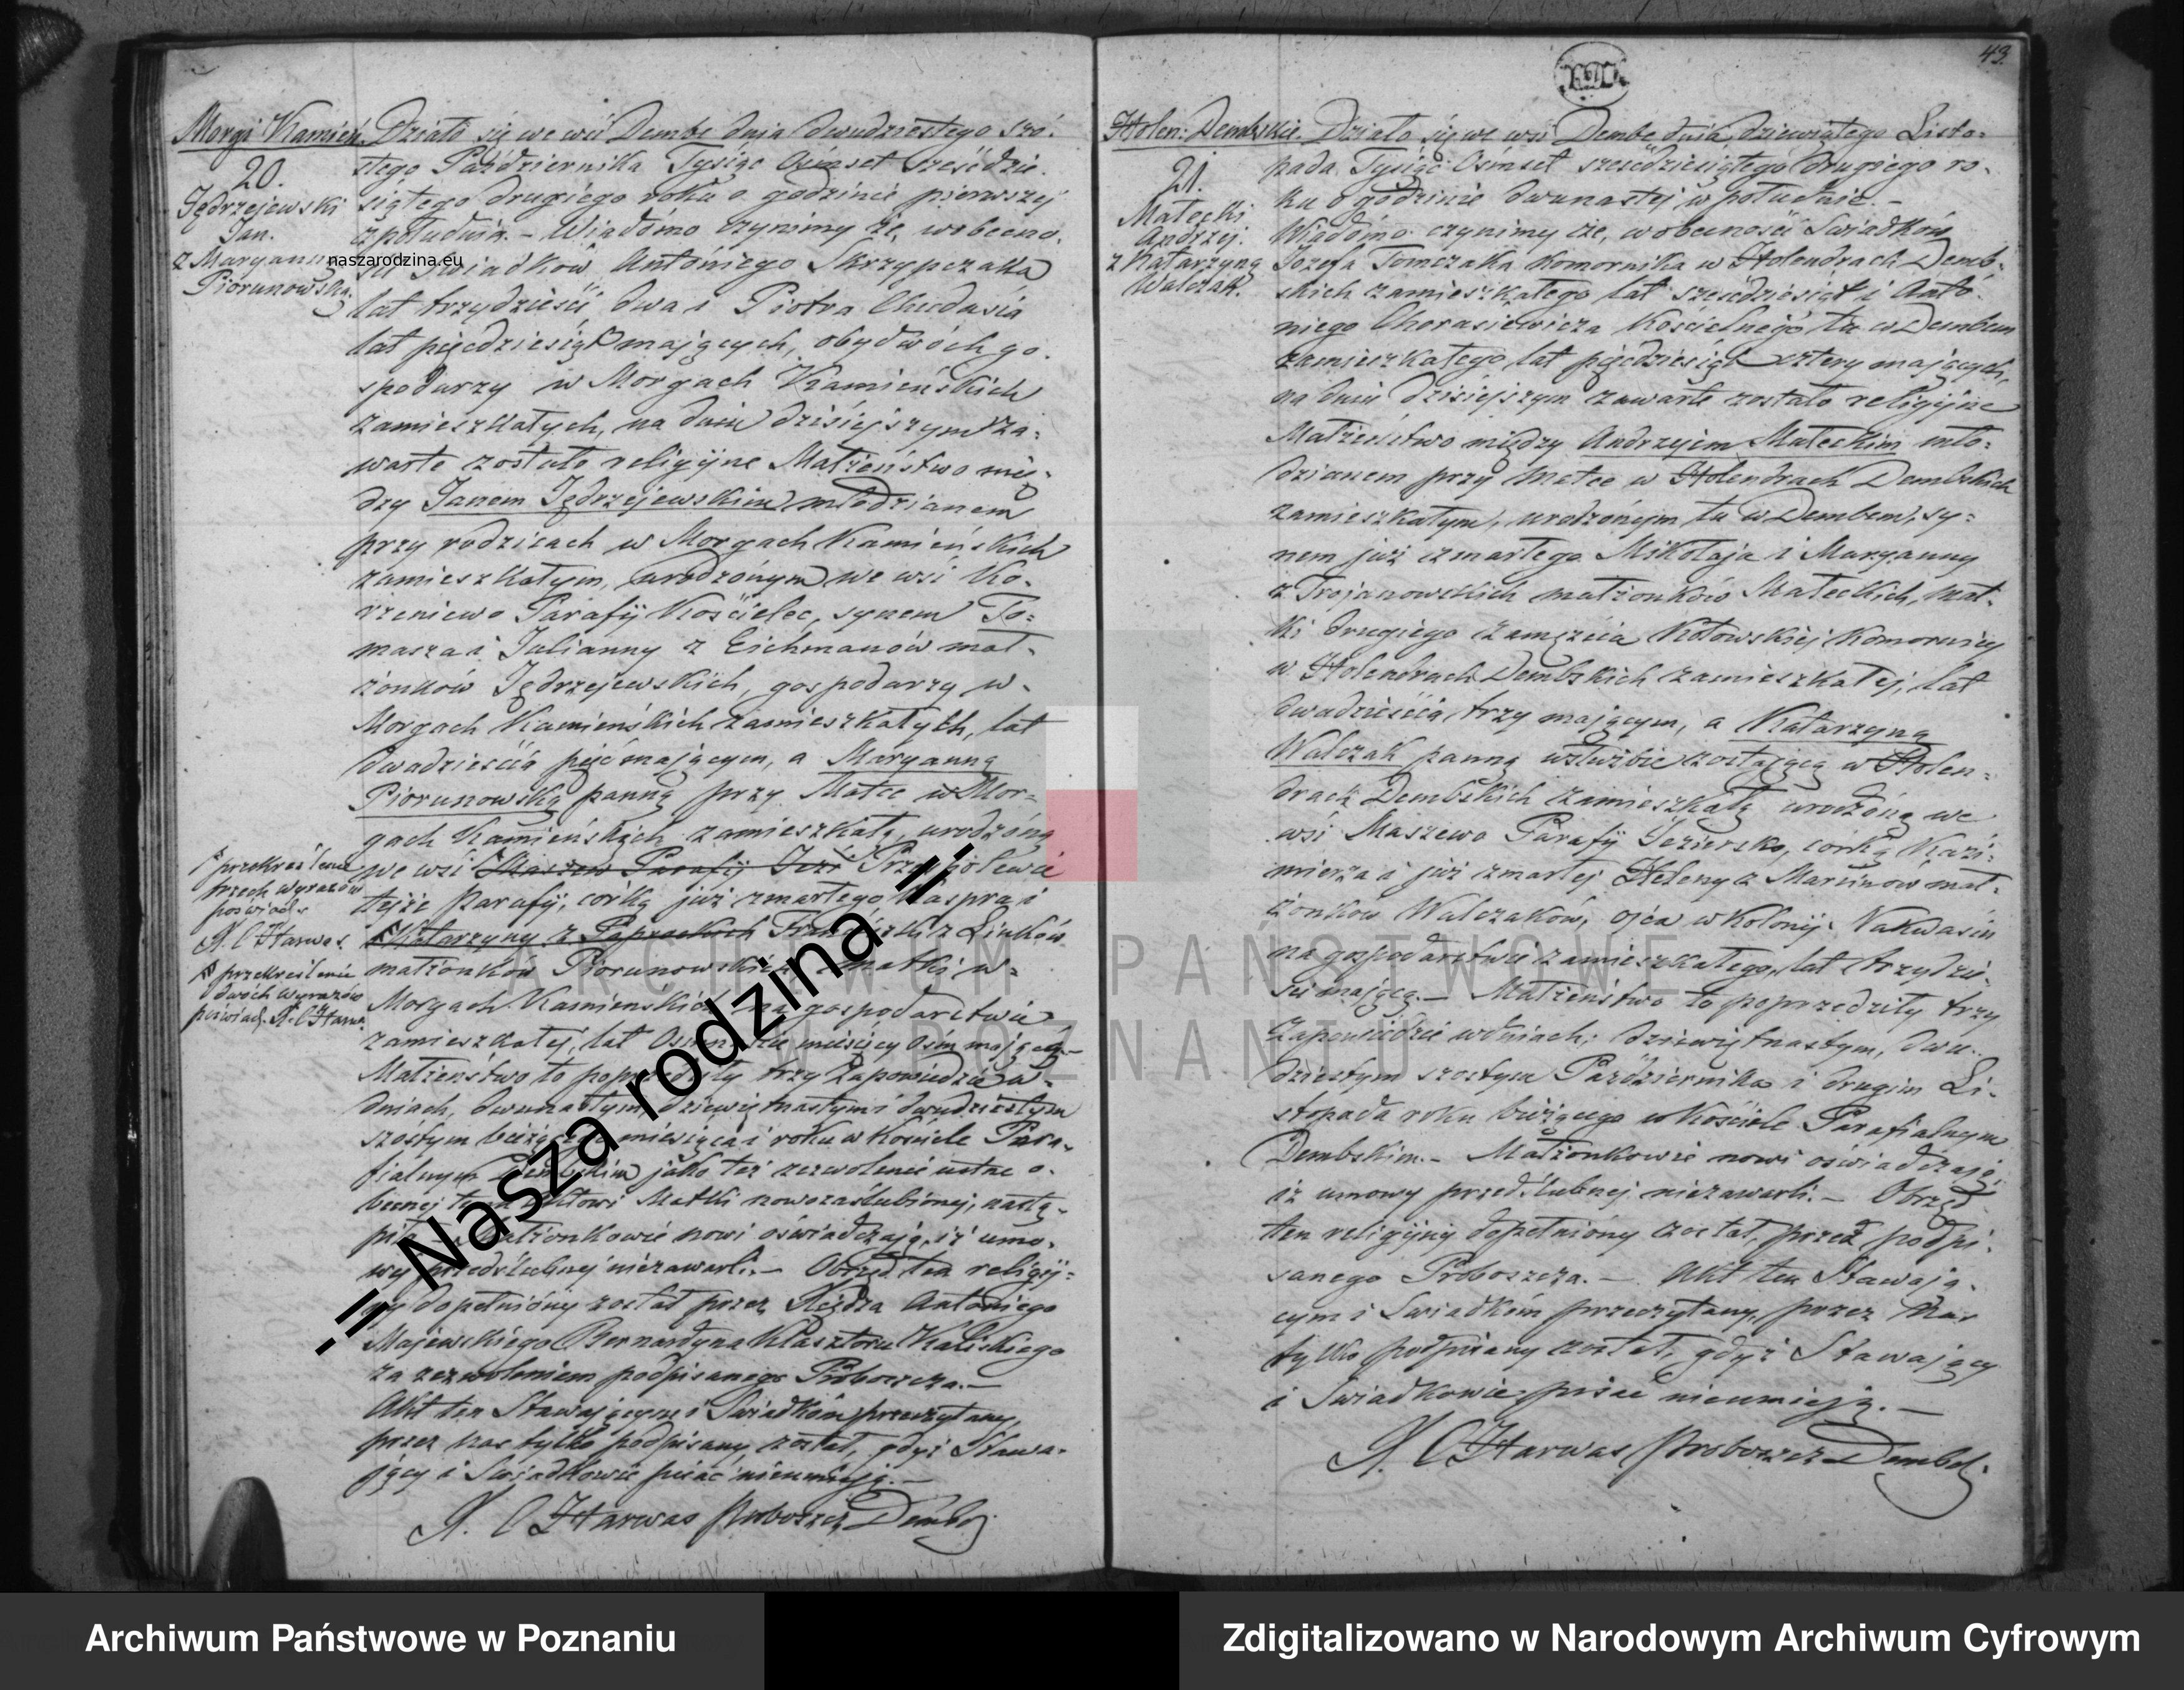 Morgi Kamień.
20.
Jędrzejewski
Jan.
z Maryanną
Piorunowską.
Działo się we wsi Dembe dnia dwudziestego szó-
stego Października Tysiąc Ośmset sześćdzie-
siątego drugiego roku o godzinie pierwszej
z południa. – Wiadomo czynimy że, w obecno-
ści Świadków Antoniego Skrzypczaka
lat trzydzieści dwa i Piotra Chudasia
lat pięćdziesiąt mających, obydwóch go-
spodarzy w Morgach Kamieńskich
zamieszkałych, na dniu dzisiejszym za-
warte zostało religijne Małżeństwo mię-
dzy Janem Jędrzejewskim młodzianem
przy rodzicach w Morgach Kamieńskich
zamieszkałym, urodzonym we wsi Ko-
rzeniewo Parafij Kościelec, synem To-
masza i Julianny z Eichmanów mał-
żonków Jędrzejewskich, gospodarzy w
Morgach Kamieńskich zamieszkałych, lat
dwadzieścia pięć mającym, a Maryanną
Piorunowską panną przy Matce w Mor-
gach Kamieńskich zamieszkałą, urodzoną
we wsi Maszew Parafij Jezi
tejże Parafij, córką już zmarłego Kaspra i
Katarzyny z Paprockich Franciszki z Linków
małżonków Piorunowskich, matki w
Morgach Kamieńskich na gospodarstwie
zamieszkałej, lat Osiemnaście miesięcy Ośm mającą. –
Małżeństwo to poprzedziły trzy Zapowiedzie w
dniach, dwunastym, dziewiętnastym i dwudziestym
szóstym bieżącego miesiąca i roku w Kościele Para-
fialnym Dembskim jako też zezwolenie ustne o-
becnej temu Aktowi Matki nowozaślubionej, nastą-
piło. – Małżonkowie nowi oświadczają, iż umo-
wy przedślubnej niezawarli. – Obrzęd ten religij-
ny dopełniony został przez Księdza Antoniego
Majewskiego Bernardyna Klasztoru Kaliskiego
za zezwoleniem podpisanego Proboszcza. –
Akt ten Stawającym i Świadkom przeczytany,
przez nas tylko podpisany został, gdyż Stawa-
jący i Świadkowie pisać nieumieją. –
X. C Harwas Proboszcz Dembs.
przekreślenie
trzech wyrazów
poświad.
X. C Harwas.
przekreślenie
dwóch wyrazów
poświad. X. C Harwa.
49.
Holen: Dembskie.
21.
Małecki
Andrzej.
z Katarzyną
Walczak.
Działo się we wsi Dembe dnia dziewiątego Listo-
pada Tysiąc Ośmset sześćdziesiątego drugiego ro-
ku o godzinie dwunastej w południe. –
Wiadomo czynimy że, w obecności Świadków
Józefa Tomczaka Komornika w Holendrach Demb-
skich zamieszkałego lat sześćdziesiąt i Anto-
niego Chorasiewicza Kościelnego tu w Dembem
zamieszkałego, lat pięćdziesiąt cztery mających,
na dniu dzisiejszym zawarte zostało religijne
Małżeństwo między Andrzejem Małeckim mło-
dzianem przy Matce w Holendrach Dembskich
zamieszkałym, urodzonym tu w Dembem, sy-
nem już zmarłego Mikołaja i Maryanny
z Trojanowskich małżonków Małeckich, mat-
ki drugiego zamężcia Kotowskiéj Komornicy
w Holendrach Dembskich zamieszkałej, lat
dwadzieścia trzy mającym, a Katarzyną
Walczak panną w służbie zostającą w Holen-
drach Dembskich zamieszkałą urodzoną we
wsi Maszewo Parafij Jeziersko, córką Kazi-
mierza i już zmarłej Heleny z Marcinów mał-
żonków Walczaków, ojca w Kolonij Nakwasin
na gospodarstwie zamieszkałego, lat trzydzie-
ści mającą. – Małżeństwo to poprzedziły trzy
Zapowiedzie w dniach: dziewiętnastym, dwu-
dziestym szóstym Października i drugim Li-
stopada roku bieżącego w Kościele Parafialnym
Dembskim. – Małżonkowie nowi oświadczają,
iż umowy przedślubnej niezawarli. – Obrzęd
ten religijny dopełniony został, przez podpi-
sanego Proboszcza. – Akt ten Stawają-
cym i Świadkom przeczytany, przez Nas
tylko podpisany został, gdyż Stawający
i Świadkowie pisać nieumieją. –
X. C Harwas Proboszcz Dembs.
naszarodzina.eu
-= Nasza rodzina =-
ARCHIWUM PAŃSTWOWE
W POZNANIU
Archiwum Państwowe w Poznaniu
Zdigitalizowano w Narodowym Archiwum Cyfrowym